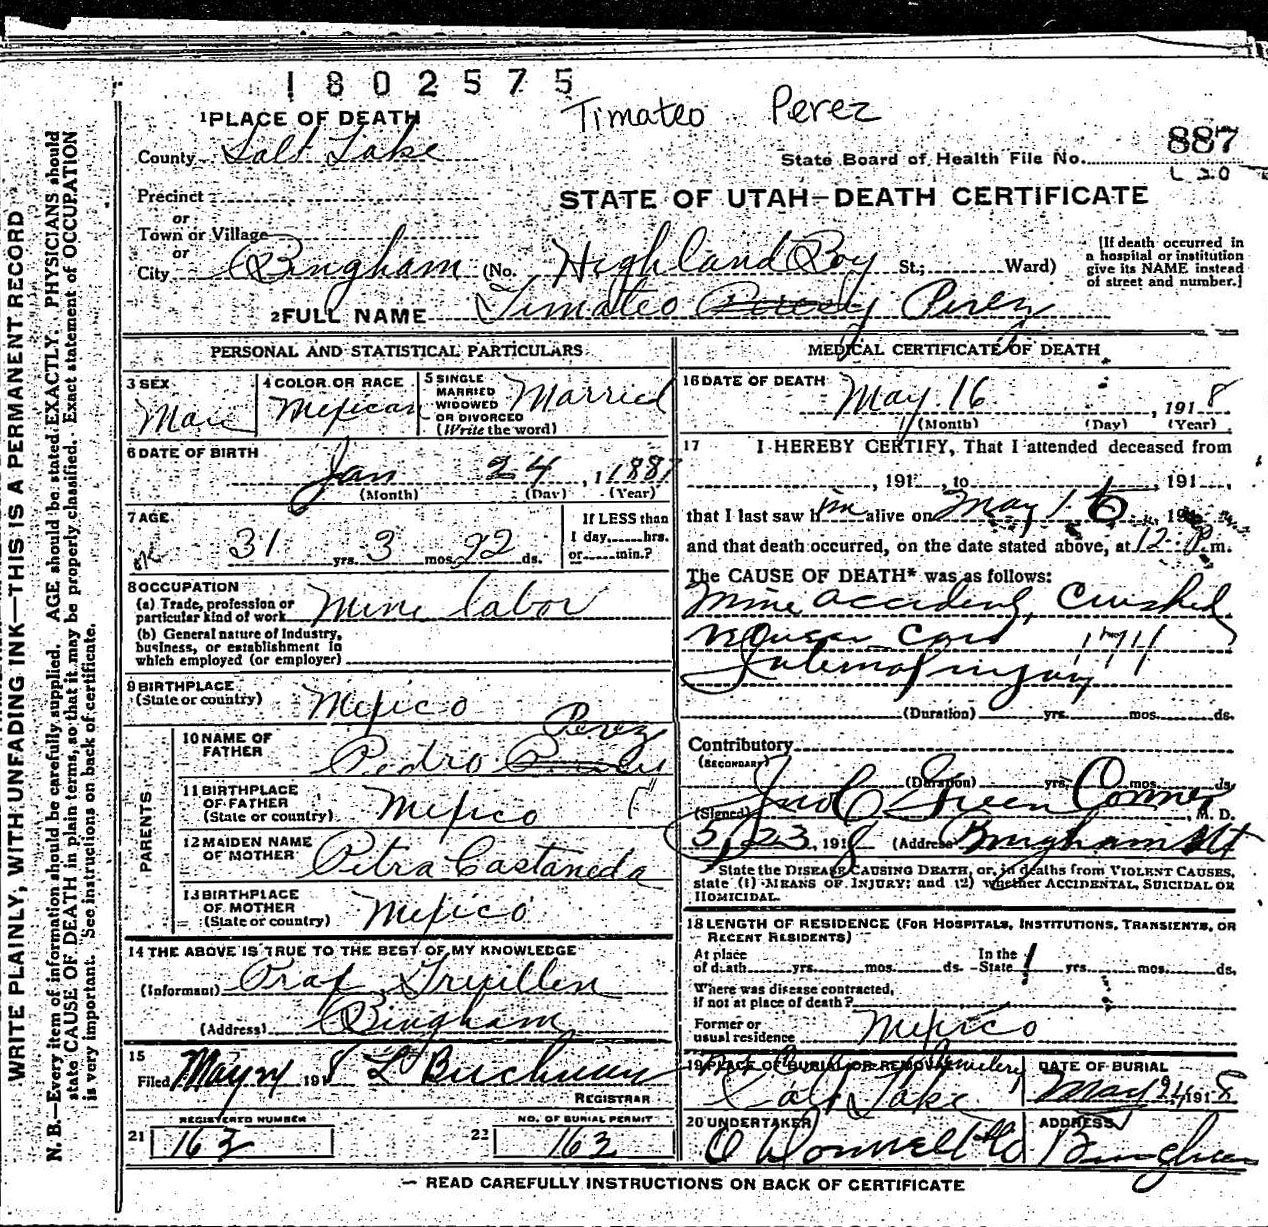 1802575
Timateo Perez
1 PLACE OF DEATH
County Salt Lake
State Board of Health File No. 887
Precinct
STATE OF UTAH—DEATH CERTIFICATE
or
Town or Village
or
City Bingham (No. Highland Boy St.; Ward)
[If death occurred in
a hospital or institution
give its NAME instead
of street and number.]
2 FULL NAME Timateo Perez
PERSONAL AND STATISTICAL PARTICULARS
3 SEX
Male
4 COLOR OR RACE
Mexican
5 SINGLE
MARRIED
WIDOWED
OR DIVORCED
(Write the word)
Married
6 DATE OF BIRTH
Jan 24, 1887
(Month) (Day) (Year)
7 AGE
31 yrs. 3 mos. 22 ds.
If LESS than
1 day, hrs.
or min.?
8 OCCUPATION
(a) Trade, profession or
particular kind of work Mine labor
(b) General nature of Industry,
business, or establishment in
which employed (or employer)
9 BIRTHPLACE
(State or country) Mexico
PARENTS
10 NAME OF
FATHER
Pedro Perez
11 BIRTHPLACE
OF FATHER
(State or country) Mexico
12 MAIDEN NAME
OF MOTHER Petra Castaneda
13 BIRTHPLACE
OF MOTHER
(State or country) Mexico
14 THE ABOVE IS TRUE TO THE BEST OF MY KNOWLEDGE
(Informant)
(Address) Bingham
15
Filed May 24 1918 L Buchman
REGISTRAR
REGISTERED NUMBER
21 163
NO. OF BURIAL PERMIT
22 163
MEDICAL CERTIFICATE OF DEATH
16 DATE OF DEATH
May 16, 1918
(Month) (Day) (Year)
17 I HEREBY CERTIFY, That I attended deceased from
, 191 , to , 191 ,
that I last saw him alive on May 16, 191
and that death occurred, on the date stated above, at 12 P m.
The CAUSE OF DEATH* was as follows:
Mine accident, Crushed
174
Internal injury
(Duration) yrs. mos. ds.
Contributory
(SECONDARY)
(Duration) yrs. mos. ds.
(Signed) Green Conner, M. D.
5/23, 1918 (Address) Bingham Ut
State the DISEASE CAUSING DEATH, or, in deaths from VIOLENT CAUSES,
state (1) MEANS OF INJURY; and (2) whether ACCIDENTAL, SUICIDAL OR
HOMICIDAL.
18 LENGTH OF RESIDENCE (FOR HOSPITALS, INSTITUTIONS, TRANSIENTS, OR
RECENT RESIDENTS)
At place
of death yrs. mos. ds.
In the
State 1 yrs. mos. ds.
Where was disease contracted,
if not at place of death?
Former or
usual residence Mexico
19 PLACE OF BURIAL OR REMOVAL
Cemetery
Salt Lake
DATE OF BURIAL
May 24 1918
20 UNDERTAKER
O Donnell & Co
ADDRESS
Bingham
— READ CAREFULLY INSTRUCTIONS ON BACK OF CERTIFICATE
WRITE PLAINLY, WITH UNFADING INK—THIS IS A PERMANENT RECORD
N. B.—Every item of information should be carefully supplied. AGE should be stated EXACTLY. PHYSICIANS should
state CAUSE OF DEATH in plain terms, so that it may be properly classified. Exact statement of OCCUPATION
is very important. See instructions on back of certificate.